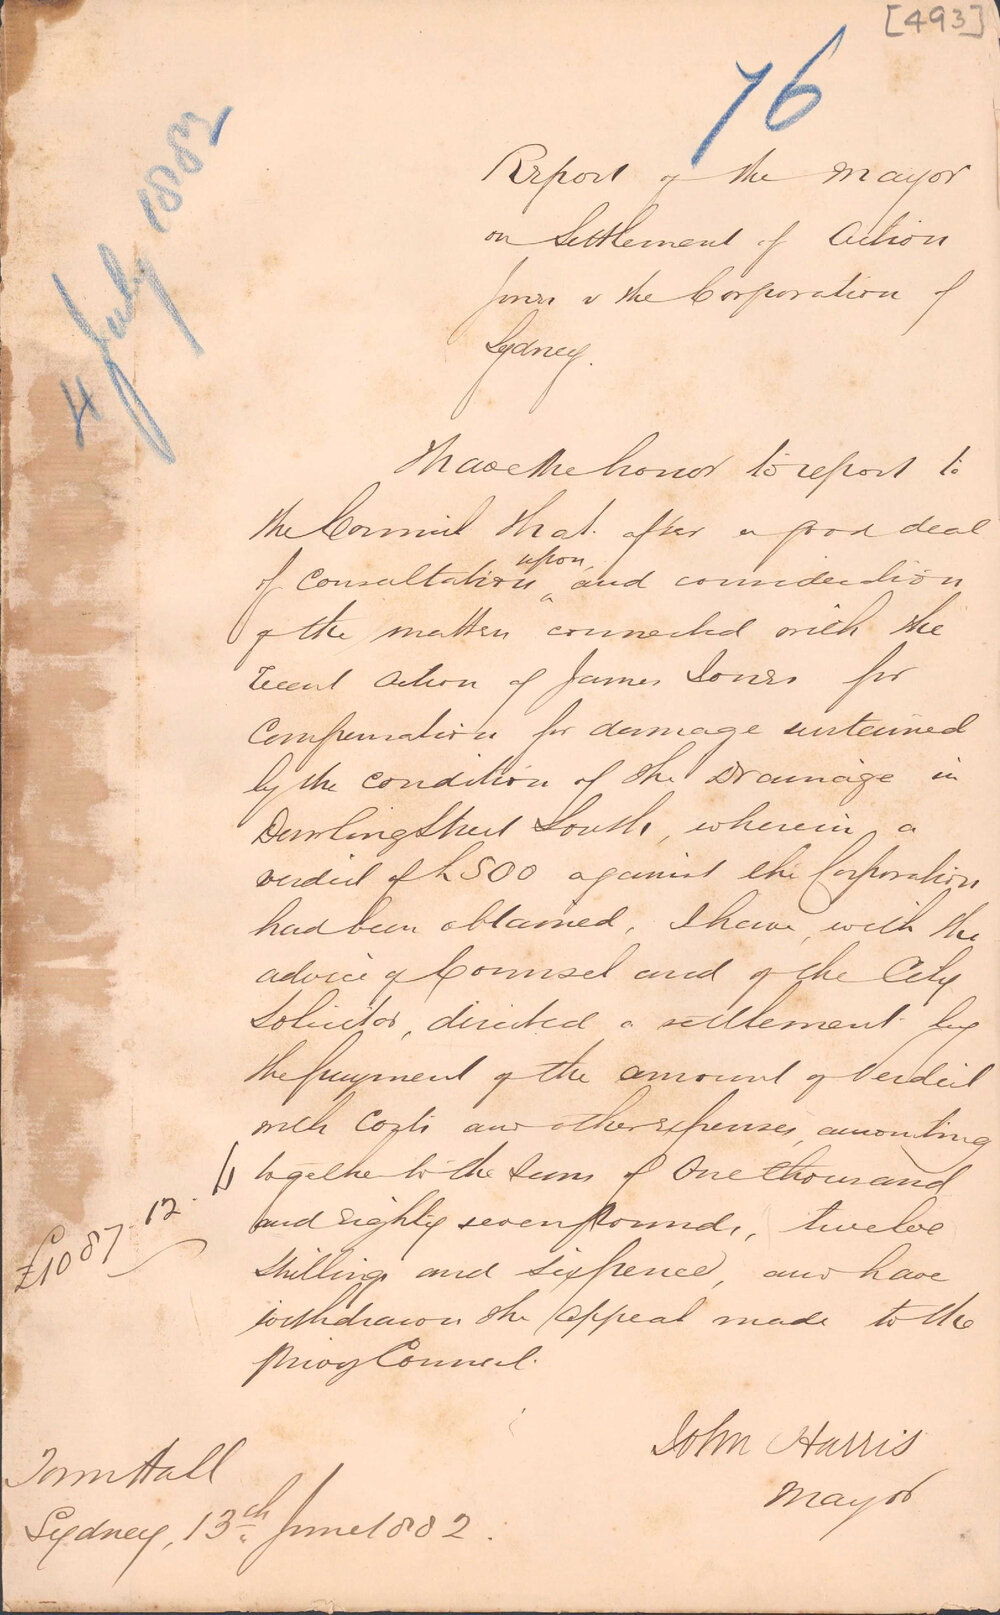 [493]
76
4 July 1882
Report of the Mayor
on Settlement of Action
Jones v the Corporation of
Sydney.
I have the honor to report to
the Council that after a good deal
of Consultation upon and consideration
of the matters connected with the
recent Action of James Jones for
Compensation for damage sustained
by the condition of the Drainage in
Dowling Street South, wherein a
verdict of £500 against the Corporation
had been obtained, I have, with the
advice of Counsel and of the City
Solicitor, directed a settlement by
the payment of the amount of Verdict
with Costs and other expenses, amounting
together to the Sum of One thousand
and eighty seven pounds, twelve
shillings and sixpence, and have
withdrawn the appeal made to the
Privy Council.
£1087.12.6
John Harris
Mayor
Town Hall
Sydney, 13th June 1882.